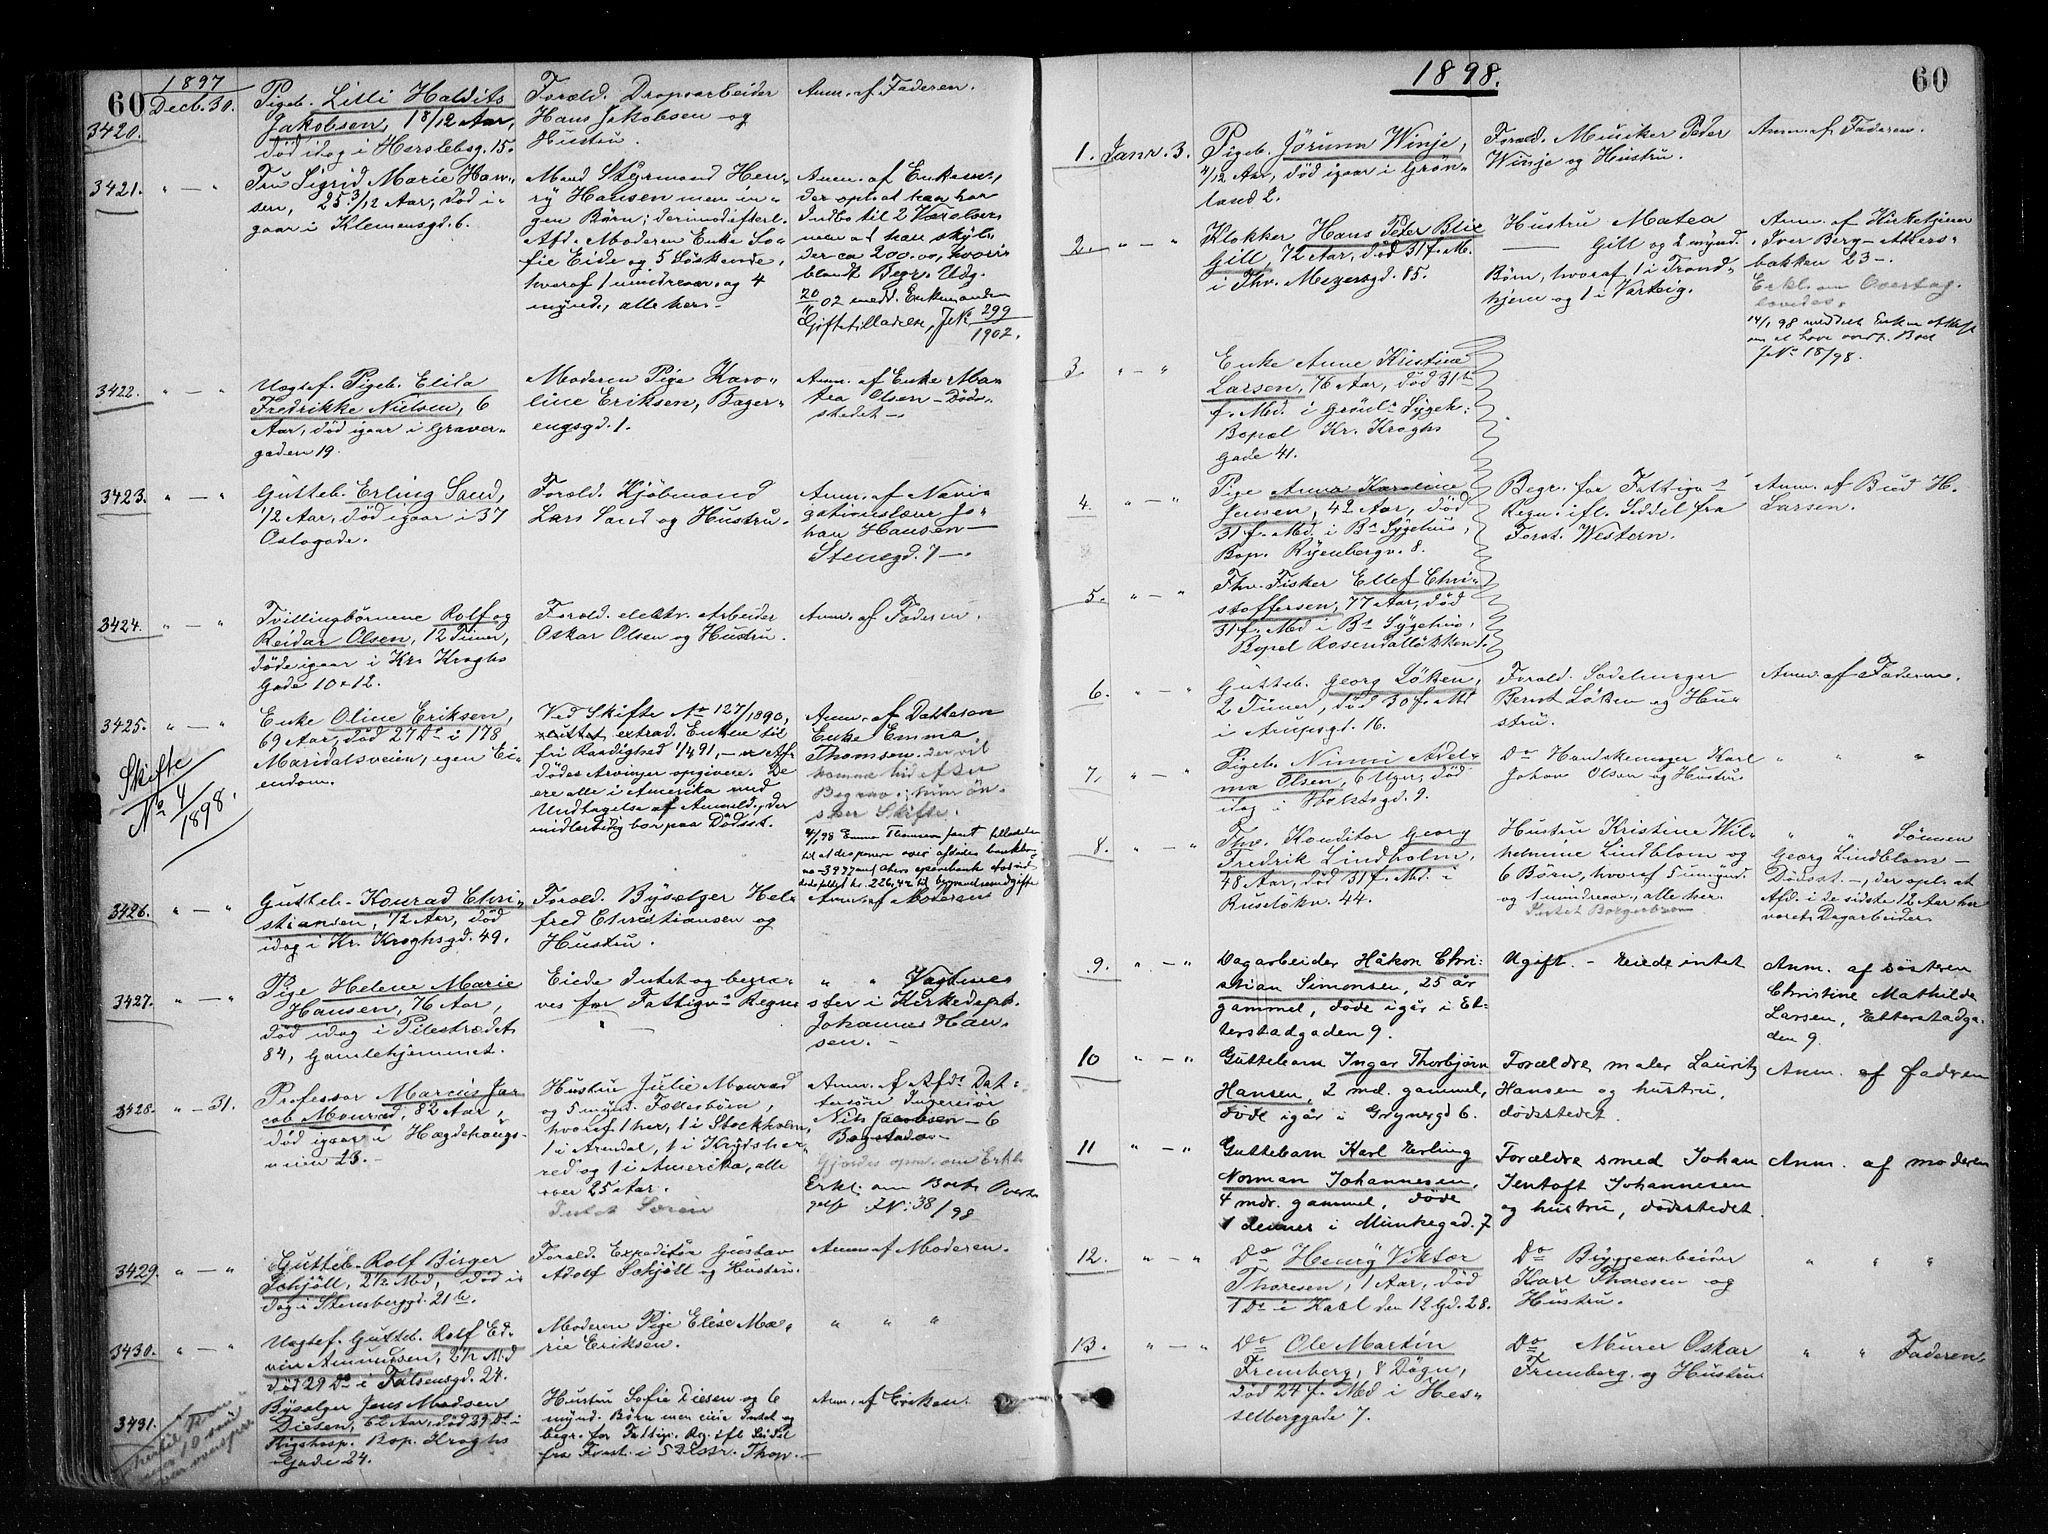 60
1897
Decb. 30.
3420.
Pigeb. Lilli Haldits
Jakobsen, 18/12 Aar,
død idag i Herslebsg. 15.
Foræld. Dropsarbeider
Hans Jakobsen og
Hustru.
Anm. af Faderen.
3421. " — "
Fru Sigrid Marie Han-
sen, 25 3/12 Aar, død i-
gaar i Klemensgd. 6.
Mand Styrmand Hen-
ry Hansen men in-
gen Børn; derimod efterl.
Afd. Moderen Enke So-
fie Eide og 5 Søskende,
hvoraf 1 umindreaar. og 4
mynd., alle her.
Anm. af Enkem.,
der opl. at han har
Indbo til 2 Værelser
men at han skyl-
der ca 200.00, hvori-
blandt Begr. Udg.
20/11 02 medd. Enkemanden
Giftetilladelse, J.No 299/1902.
3422. " — "
Uægtef. Pigeb. Elida
Fredrikke Nielsen, 6
Aar, død igaar i Graver-
gaden 19.
Moderen Pige Karo-
line Eriksen, Bager-
engsgd. 1.
Anm. af Enke Ma-
tea Olsen - Døds-
stedet.
3423. " — "
Gutteb. Erling Sand,
1/2 Aar, død igaar i 37
Oslogade.
Foræld. Kjøbmand
Lars Sand og Hustru.
Anm. af Navi-
gationslærer Jo-
han Hansen
Stenegd. 7 —.
3424. " — "
Tvillingbørnene Rolf og
Reidar Olsen, 12 Timer,
døde igaar i Kr. Kroghs
Gade 10 & 12.
Foræld. elektr. Arbeider
Oskar Olsen og Hustru.
Anm. af Faderen.
3425. " — "
Skifte
No. 4/1898.
Enke Oline Eriksen,
69 Aar, død 27 Ds i 178
Maridalsveien, egen Ei-
endom.
Ved Skifte No 127/1890,
sluttet extrad. Enken til
fri Raadighed 1/4 91, - er Af-
dødes Arvinger opgivere. De
ere alle i Amerika med
Undtagelse af Anmeld., der
midlertidig bor paa Dødsst.
Anm. af Datteren
Enke Emma
Thomsen, der vil
komme hid efter
Begrav.; hun øn-
sker Skifte.
4/1 98 Emma Thomsen givet tilladelse
til at disponere over afdødes bankbog
3426. " — "
Gutteb. Konrad Chri-
stiansen, 1/2 Aar, død
idag i Kr. Kroghsgd. 49.
Foræld. Bysælger Hel-
fred Christiansen og
Hustru.
Anm. af Moderen
3427. " — "
Pige Helene Marie
Hansen, 76 Aar,
død idag i Pilestrædet
84, Gamlehjemmet.
Eiede Intet og begra-
ves for Fattigv.s Regne
" " Vagtmes-
ster i Kirkedept.
Johannes Han-
sen. -
3428. " — 31.
Professor Marcus Ja-
cob Monrad, 82 Aar,
død igaar i Hægdehaugs-
veien 23. -
Hustru Julie Monrad
og 5 mynd. Fællesbørn,
hvoraf 1 her, 1 i Stockholm,
1 i Arendal, 1 i Krydsher-
red og 1 i Amerika, alle
over 25 Aar.
Anm. af Afds. Dat-
tersøn Ingeniør
Nils Jacobsen - 6
Bogstadv. -
Gjordes opm. om Erkl.
Erkl. om Boets Overta-
gelse J.No. 38/98
3429. " — "
Gutteb. Rolf Birger
Schjøll, 2 1/2 Md, død i-
dag i Stensberggd. 21 b.
Foræld. Expeditør Gustav
Adolf Schjøll og Hustru.
Anm. af Moderen.
3430. " — "
Uægtef. Gutteb. Rolf Ed-
vin Amundsen, 2 1/2 Md
død 29 Ds i Falsensgd. 24.
Moderen Pige Elise Ma-
rie Eriksen.
" " "
3431.
Bysælger Jens Madsen
Diesen, 62 Aar, død 29 Ds i
Rigshosp. Bop. Kroghs
Gade 24.
Hustru Sofie Diesen og 6
mynd. Børn men eiede Intet og
begr. for Fattigv. Reg. ifl. Seddel
fra Forst. i 5 Distr. Thor. -
Anm. af Enken.
1898.
60
1. Janr. 3.
Pigeb. Jørunn Winje,
4/12 Aar, død igaar i Grøn-
land 2.
Foræld. Musiker Peder
Winje og Hustru.
Anm. af Faderen.
2. " — "
Klokker Hans Peter Blix
Gill, 72 Aar, død 31 f. M.
i Thv. Meyersgd. 85.
Hustru Matea
Gill og 2 mynd.
Børn, hvoraf 1 i Trond-
hjem og 1 i Varteig.
Anm. af Kirketjener
Iver Berg - Akers-
bakken 23 -.
Erkl. om Overtag.
lovedes.
14/1 98 meddelt Enken Attest
om at have overt. Boet
J.No 18/98.
3. " — "
Enke Anne Kristine
Larsen, 76 Aar, død 31te
f. Md. i Grønl.s Sygeh.
Bopæl Kr. Kroghs
Gade 41.
4. " — "
Pige Anna Karoline
Jensen, 42 Aar, død
31 f. Md. i Bs Sygehus,
Bop. Ryenbergv. 8.
Begr. for Fattigv.s
Regn. ifl. Seddel fra
Forst. Western.
Anm. af Bud H.
Larsen.
5. " — "
Fhv. Fisker Ellef Chri-
stoffersen, 77 Aar, død
31 f. Md i Bs Sygehus,
Bopæl Rosendalløkken 1.
6. " — "
Gutteb. Georg Løken,
2 Timer, død 30 f. Md
i Arupsgd. 16.
Foræld. Sadelmager
Bernt Løken og Hu-
stru.
Anm. af Faderen.
7. " — "
Pigeb. Ninni Adel-
ma Olsen, 6 Uger, død
idag i Holstsgd. 9.
Do Handskemager Karl
Johan Olsen og Hustru.
" " "
8. " — "
Fhv. Konditor Georg
Fredrik Lindholm,
48 Aar, død 31 f. Md. i
Ruseløkv. 44.
Hustru Kristine Wil-
helmine Lindblom og
6 Børn, hvoraf 5 umynd.
og 1 mindreaar., alle her.
" " Sønnen
Georg Lindblom -
Dødsst. -, der opl. at
Afd. i de sidste 12 Aar har
været Dagarbeider.
9. " — "
Dagarbeider Håkon Chri-
stian Simonsen, 25 år
gammel, døde igår i Et-
terstadgaden 9.
Ugift. - Eiede intet
Anm. af søsteren
Christine Mathilde
Larsen, Etterstadga-
den 9.
10 " — "
Guttebarn Ingar Thorbjørn
Hansen, 2 md. gammel,
døde igår i Grynergd 6.
Forældre maler Lauritz
Hansen og hustru,
dødsstedet.
Anm. af faderen
11 " — "
Guttebarn Karl Erling
Norman Johannesen,
4 mdr. gammel, døde
1 denne i Munkegad. 7
Forældre smed Johan
Jentoft Johannesen
og hustru, dødsstedet.
Anm. af moderen
12. " — "
Do Henry Viktor
Thoresen, 1 Aar, død
1 Ds i Karl den 12 Gd. 28.
Do Bryggearbeider
Karl Thoresen og
Hustru.
" " "
13. " — "
Do Ole Martin
Fremberg, 8 Døgn,
død 24 f. Md i Hes-
selberggade 7.
Do Murer Oskar
Fremberg og Hustru
" " Faderen.